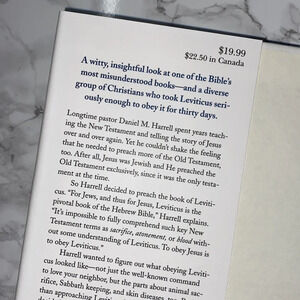 $19.99
$22.50 in Canada
A witty, insightful look at one of the Bible's
most misunderstood books—and a diverse
group of Christians who took Leviticus seri-
ously enough to obey it for thirty days.
Longtime pastor Daniel M. Harrell spent years teach-
ing the New Testament and telling the story of Jesus
over and over again. Yet he couldn't shake the feeling
that he needed to preach more of the Old Testament,
too. After all, Jesus was Jewish and He preached the
Old Testament exclusively, since it was the only testa-
ment at the time.
So Harrell decided to preach the book of Leviti-
cus. "For Jews, and thus for Jesus, Leviticus is the
pivotal book of the Hebrew Bible," Harrell explains.
"It's impossible to fully comprehend such key New
Testament terms as sacrifice, atonement, or blood with-
out some understanding of Leviticus. To obey Jesus is
to obey Leviticus."
Harrell wanted to figure out what obeying Leviti-
cus looked like—not just the well-known command
to love your neighbor, but the parts about animal sac-
rifice, Sabbath keeping, and skin diseases, too.
than approaching